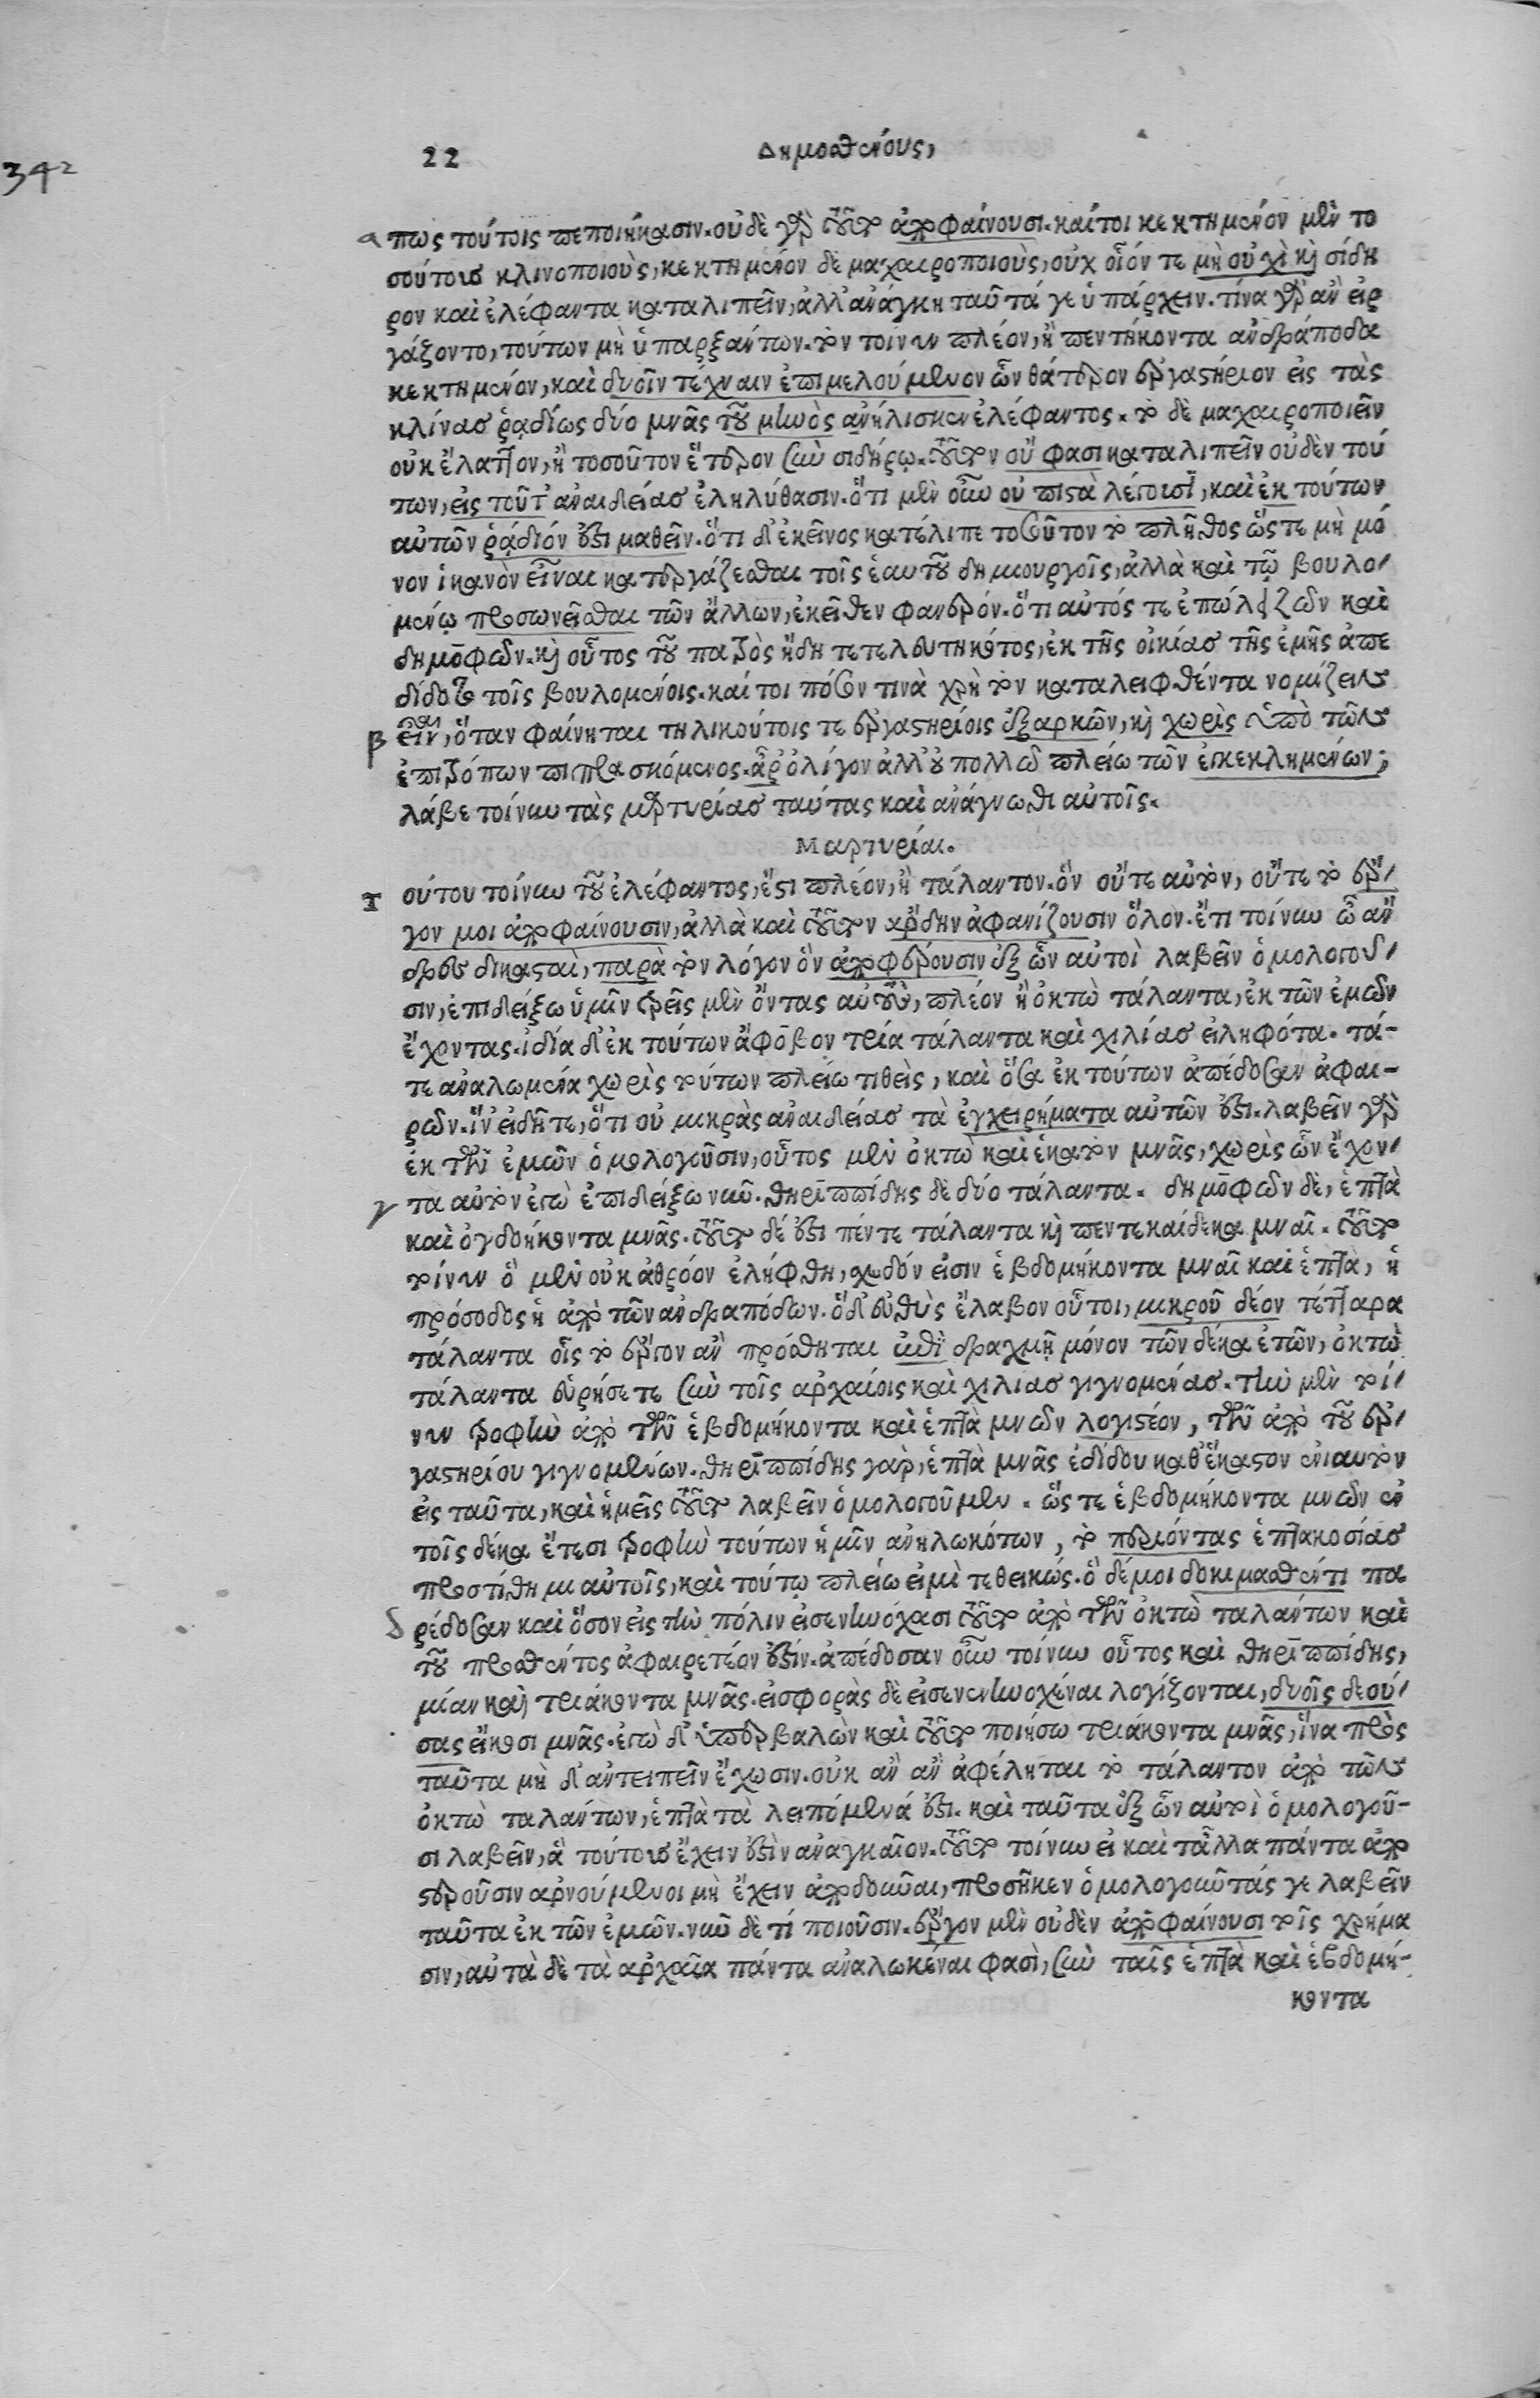 342
22 Δημοσθένους,
α πως τούτοις πεποιήκασιν. οὐδὲ γὰρ τοῦτο ἀποφαίνουσι. καίτοι κεκτημένον μὲν το
σούτους κλινοποιοὺς, κεκτημένον δὲ μαχαιροποιοὺς, οὐχ οἷόν τε μὴ οὐχὶ καὶ σίδη
ρον καὶ ἐλέφαντα καταλιπεῖν, ἀλλ' ἀνάγκη ταῦτά γε ὑπάρχειν. τίνα γὰρ ἂν εἰρ
γάζοντο, τούτων μὴ ὑπαρξάντων. τὸν τοίνυν πλέον, ἢ πεντήκοντα ἀνδράποδα
κεκτημένον, καὶ δυοῖν τέχναιν ἐπιμελούμενον ὧν θάτερον ἐργαστήριον εἰς τὰς
κλίνας ῥᾳδίως δύο μνᾶς τοῦ μηνὸς ἀνήλισκεν ἐλέφαντος. τὸ δὲ μαχαιροποιεῖν
οὐκ ἔλαττον, ἢ τοσοῦτον ἕτερον σὺν σιδήρῳ. τοῦτον οὔ φασι καταλιπεῖν οὐδὲν τού
των, εἰς τοῦτ' ἀναιδείας ἐληλύθασιν. ὅτι μὲν οὕτω οὐ πιστὰ λέγουσι, καὶ ἐκ τούτων
αὐτῶν ῥᾴδιόν ἐστι μαθεῖν. ὅτι δ' ἐκεῖνος κατέλιπε τοσοῦτον τὸ πλῆθος ὥστε μὴ μό
νον ἱκανὸν εἶναι κατεργάζεσθαι τοῖς ἑαυτοῦ δημιουργοῖς, ἀλλὰ καὶ τῷ βουλο-
μένῳ προσωνεῖσθαι τῶν ἄλλων, ἐκεῖθεν φανερόν. ὅτι αὐτός τε ἐπώλει ζῶν καὶ
δημοφῶν. καὶ οὗτος τοῦ πατρὸς ἤδη τετελευτηκότος, ἐκ τῆς οἰκίας τῆς ἐμῆς ἀπε
δίδοτο τοῖς βουλομένοις. καίτοι πόσον τινὰ χρὴ τὸν καταλειφθέντα νομίζειν
β εἶναι, ὅταν φαίνηται τηλικούτοις τε ἐργαστηρίοις ἐξαρκῶν, καὶ χωρὶς ὑπὸ τῶν
ἐπιτρόπων πιπρασκόμενος. ἆρ' ὀλίγον ἀλλ' οὐ πολλῷ πλείω τῶν ἐγκεκλημένων;
λάβε τοίνυν τὰς μαρτυρίας ταύτας καὶ ἀνάγνωθι αὐτοῖς.
Μαρτυρίαι.
Τ ούτου τοίνυν τοῦ ἐλέφαντος, ἔστι πλέον, ἢ τάλαντον. ὃν οὔτε αὐτὸν, οὔτε τὸ ἔρ-
γον μοι ἀποφαίνουσιν, ἀλλὰ καὶ τοῦτον ἄρδην ἀφανίζουσιν ὅλον. ἔτι τοίνυν ὦ ἄν
δρες δικασταὶ, παρὰ τὸν λόγον ὃν ἀποφέρουσιν ἐξ ὧν αὐτοὶ λαβεῖν ὁμολογοῦ-
σιν, ἐπιδείξω ὑμῖν τρεῖς μὲν ὄντας αὐτοὺς, πλέον ἢ ὀκτὼ τάλαντα, ἐκ τῶν ἐμῶν
ἔχοντας. ἰδία δ' ἐκ τούτων ἄφοβον τρία τάλαντα καὶ χιλίας εἰληφότα. τά-
τε ἀναλωμένα χωρὶς τούτων πλείω τιθεὶς, καὶ ὅσα ἐκ τούτων ἀπέδοσαν ἀφαι-
ρῶν. ἵν' εἰδῆτε, ὅτι οὐ μικρᾶς ἀναιδείας τὰ ἐγχειρήματα αὐτῶν ἐστι. λαβεῖν γὰρ
ἐκ τῶν ἐμῶν ὁμολογοῦσιν, οὗτος μὲν ὀκτὼ καὶ ἑκατὸν μνᾶς, χωρὶς ὧν ἔχον-
γ τα αὐτὸν ἐγὼ ἐπιδείξω νῦν. θηριππίδης δὲ δύο τάλαντα. δημοφῶν δὲ, ἑπτὰ
καὶ ὀγδοήκοντα μνᾶς. τοῦτο δέ ἐστι πέντε τάλαντα καὶ πεντεκαίδεκα μναῖ. τοῦτο
τοίνυν ὃ μὲν οὐκ ἀθρόον ἐλήφθη, σχεδόν εἰσιν ἑβδομήκοντα μναῖ καὶ ἑπτὰ, ἡ
πρόσοδος ἡ ἀπὸ τῶν ἀνδραπόδων. ὃ δ' εὐθὺς ἔλαβον οὗτοι, μικροῦ δέον τέτταρα
τάλαντα οἷς τὸ ἔργον ἂν πρόσθηται ἐπὶ δραχμῇ μόνον τῶν δέκα ἐτῶν, ὀκτὼ
τάλαντα εὑρήσετε σὺν τοῖς ἀρχαίοις καὶ χιλιας γιγνομένας. τὴν μὲν τοί-
νυν τροφὴν ἀπὸ τῶν ἑβδομήκοντα καὶ ἑπτὰ μνῶν λογιστέον, τῶν ἀπὸ τοῦ ἐρ-
γαστηρίου γιγνομένων. θηριππίδης γὰρ, ἑπτὰ μνᾶς ἐδίδου καθ' ἕκαστον ἐνιαυτὸν
εἰς ταῦτα, καὶ ἡμεῖς τοῦτο λαβεῖν ὁμολογοῦμεν. ὥστε ἑβδομήκοντα μνῶν ἐν
τοῖς δέκα ἔτεσι τροφὴν τούτων ἡμῖν ἀνηλωκότων, τὸ περιόντας ἑπτακοσίας
προστίθημι αὐτοῖς, καὶ τούτῳ πλείω εἰμὶ τεθεικώς. ὃ δέ μοι δοκιμασθέντι πα
δ ρέδοσαν καὶ ὅσον εἰς τὴν πόλιν εἰσενηνόχασι τοῦτο ἀπὸ τῶν ὀκτὼ ταλάντων καὶ
τοῦ προσθέντος ἀφαιρετέον ἐστίν. ἀπέδοσαν οὕτω τοίνυν οὗτος καὶ θηριππίδης,
μίαν καὶ τριάκοντα μνᾶς. εἰσφορὰς δὲ εἰσενενηνοχέναι λογίζονται, δυοῖς δεού-
σας εἴκοσι μνᾶς. ἐγὼ δ' ὑπερβαλὼν καὶ τοῦτο ποιήσω τριάκοντα μνᾶς, ἵνα πρὸς
ταῦτα μὴ δ' ἀντειπεῖν ἔχωσιν. οὐκ ἂν ἂν ἀφέληται τὸ τάλαντον ἀπὸ τῶν
ὀκτὼ ταλάντων, ἑπτὰ τὰ λειπόμενά ἐστι. καὶ ταῦτα ἐξ ὧν αὐτοὶ ὁμολογοῦ-
σι λαβεῖν, ἃ τούτους ἔχειν ἐστὶν ἀναγκαῖον. τοῦτο τοίνυν εἰ καὶ τἆλλα πάντα ἀπο
στεροῦσιν ἀρνούμενοι μὴ ἔχειν ἀποδοῦναι, προσῆκεν ὁμολογοῦντάς γε λαβεῖν
ταῦτα ἐκ τῶν ἐμῶν. νῦν δὲ τί ποιοῦσιν. ἔργον μὲν οὐδὲν ἀποφαίνουσι τοῖς χρήμα
σιν, αὐτὰ δὲ τὰ ἀρχαῖα πάντα ἀναλωκέναι φασὶ, σὺν ταῖς ἑπτὰ καὶ ἑβδομή-
κοντα